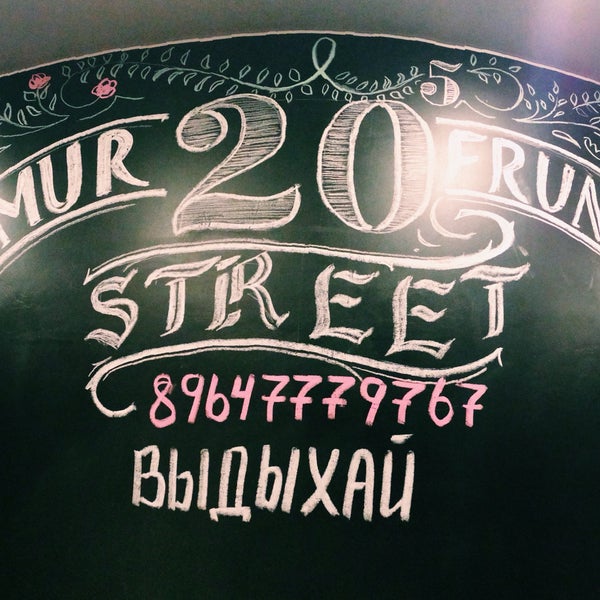 MUR 20 5 FRUN
STREET
89647779767
ВЫДЫХАЙ